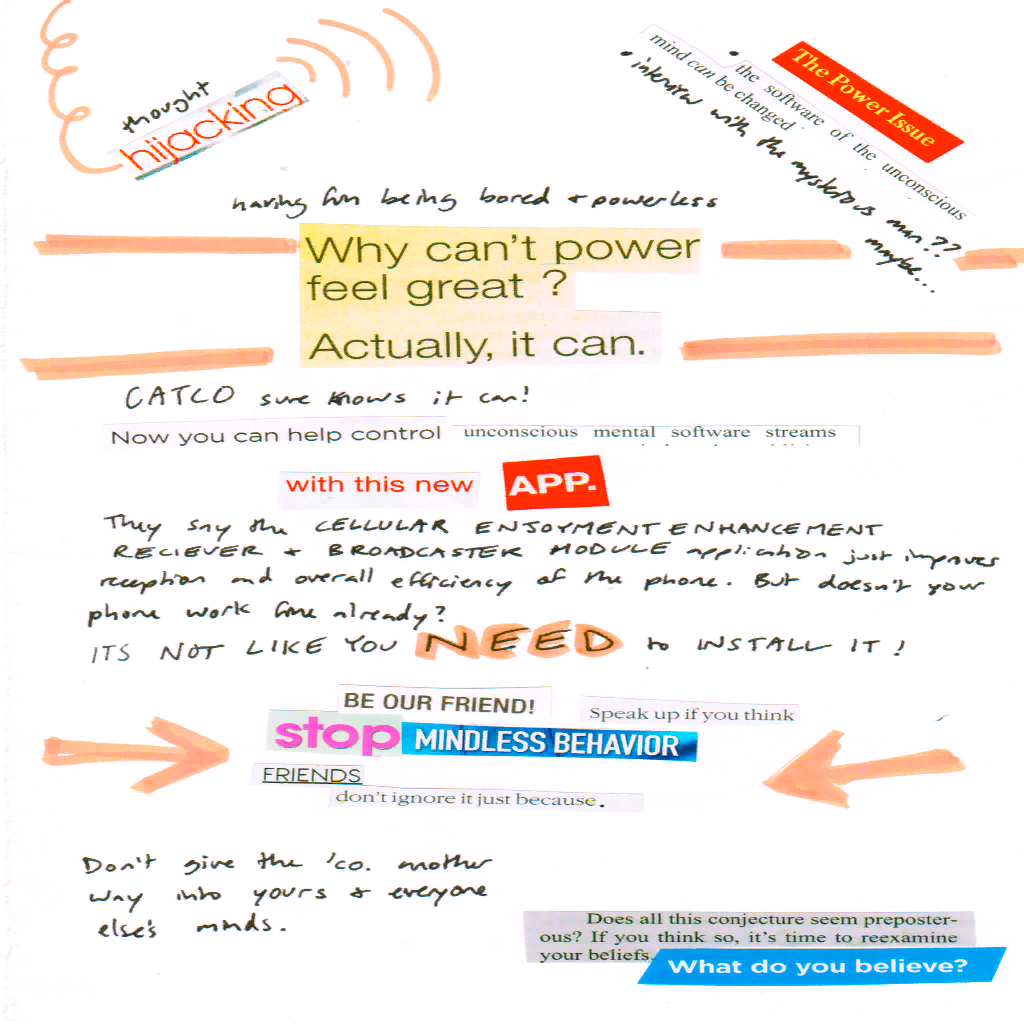 thought
hijacking
The Power Issue
• the software of the unconscious
mind can be changed
• interview with the mysterious man??
maybe...
having fun being bored + powerless
Why can't power
feel great ?
Actually, it can.
CATCO sure knows it can!
Now you can help control unconscious mental software streams
with this new APP.
They say the CELLULAR ENJOYMENT ENHANCEMENT
RECIEVER + BROADCASTER MODULE application just improves
reception and overall efficiency of the phone. But doesn't your
phone work fine already?
ITS NOT LIKE YOU NEED to INSTALL IT!
BE OUR FRIEND! Speak up if you think
stop MINDLESS BEHAVIOR
FRIENDS
don't ignore it just because.
Don't give the 'co. another
way into yours + everyone
else's minds.
Does all this conjecture seem preposter-
ous? If you think so, it's time to reexamine
your beliefs.
What do you believe?